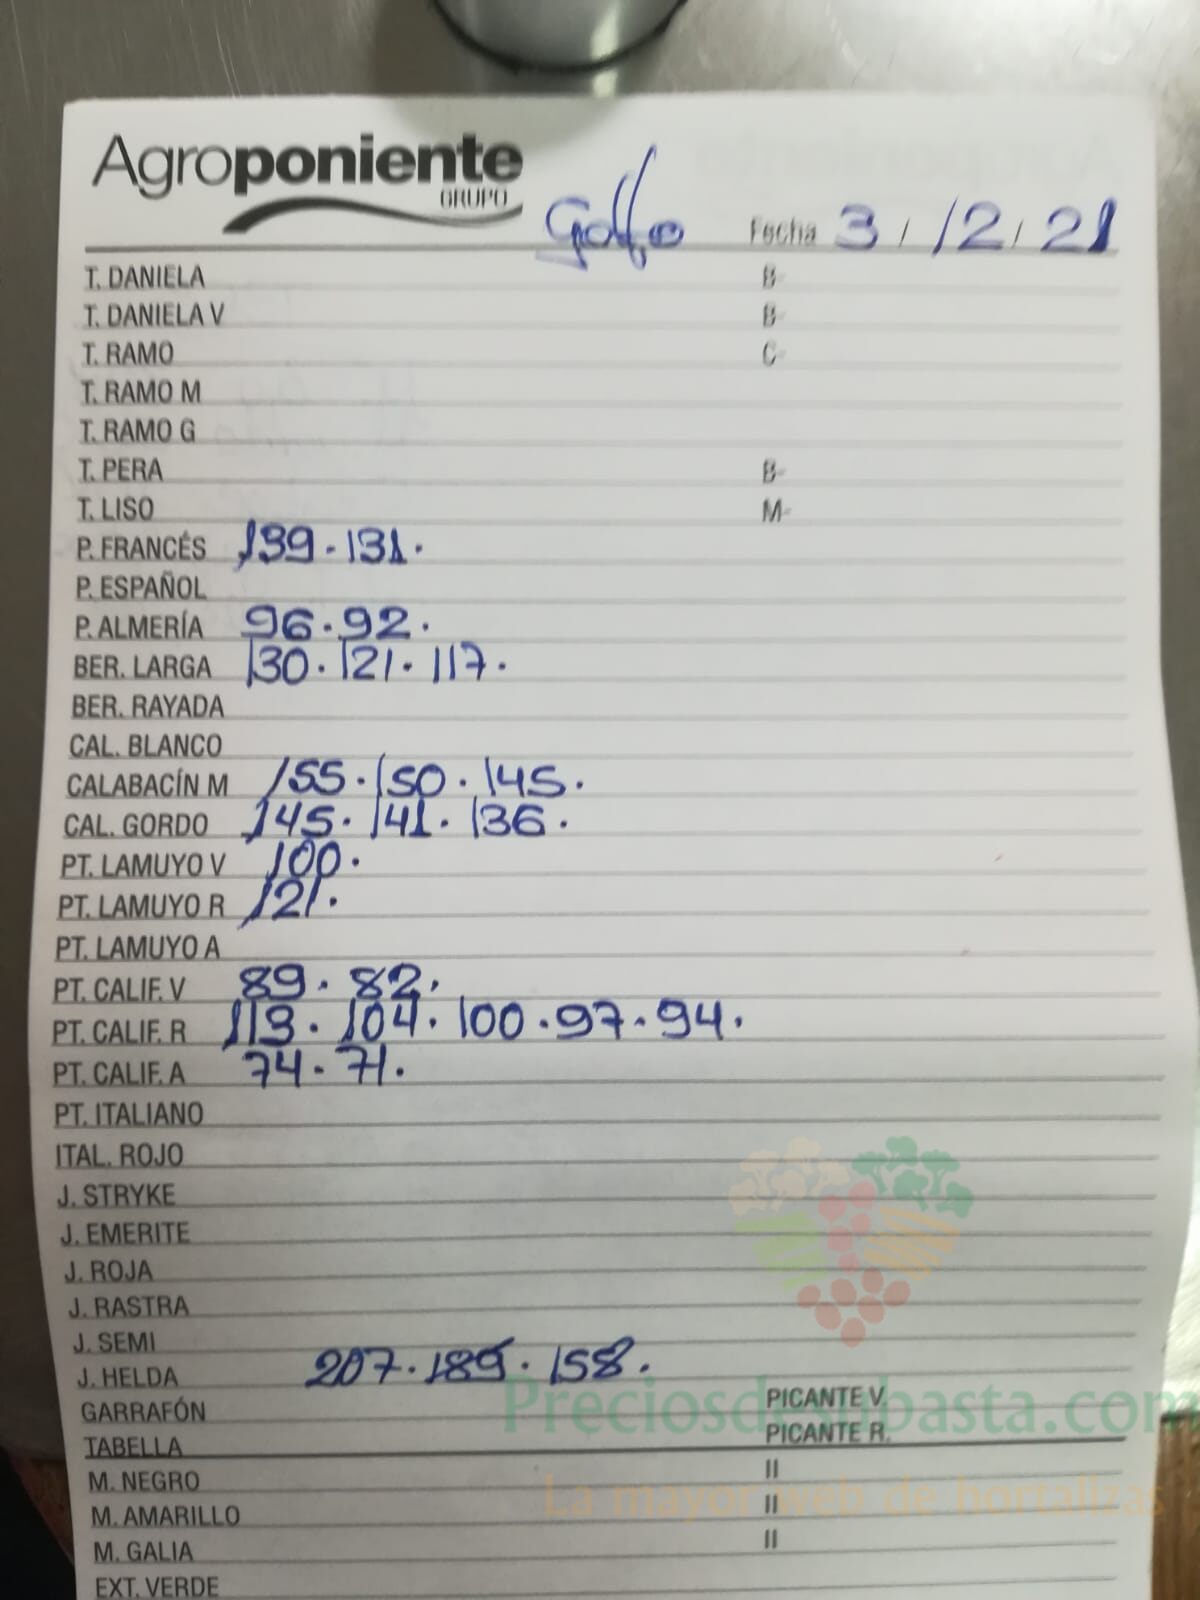 Agroponiente
GRUPO
Golfo Fecha 3 / 12 / 21
T. DANIELA B-
T. DANIELA V B-
T. RAMO C-
T. RAMO M
T. RAMO G
T. PERA B-
T. LISO M-
P. FRANCÉS 139 · 131 ·
P. ESPAÑOL
P. ALMERÍA 96 · 92 ·
BER. LARGA 130 · 121 · 117 ·
BER. RAYADA
CAL. BLANCO
CALABACÍN M 155 · 150 · 145 ·
CAL. GORDO 145 · 141 · 136 ·
PT. LAMUYO V 100 ·
PT. LAMUYO R 121 ·
PT. LAMUYO A
PT. CALIF. V 89 · 82 ·
PT. CALIF. R 113 · 104 · 100 · 97 · 94 ·
PT. CALIF. A 74 · 71 ·
PT. ITALIANO
ITAL. ROJO
J. STRYKE
J. EMERITE
J. ROJA
J. RASTRA
J. SEMI
J. HELDA 207 · 189 · 158 ·
Preciosdesubasta.com
GARRAFÓN PICANTE V.
TABELLA PICANTE R.
M. NEGRO II
La mayor web de hortalizas
M. AMARILLO II
M. GALIA II
EXT. VERDE